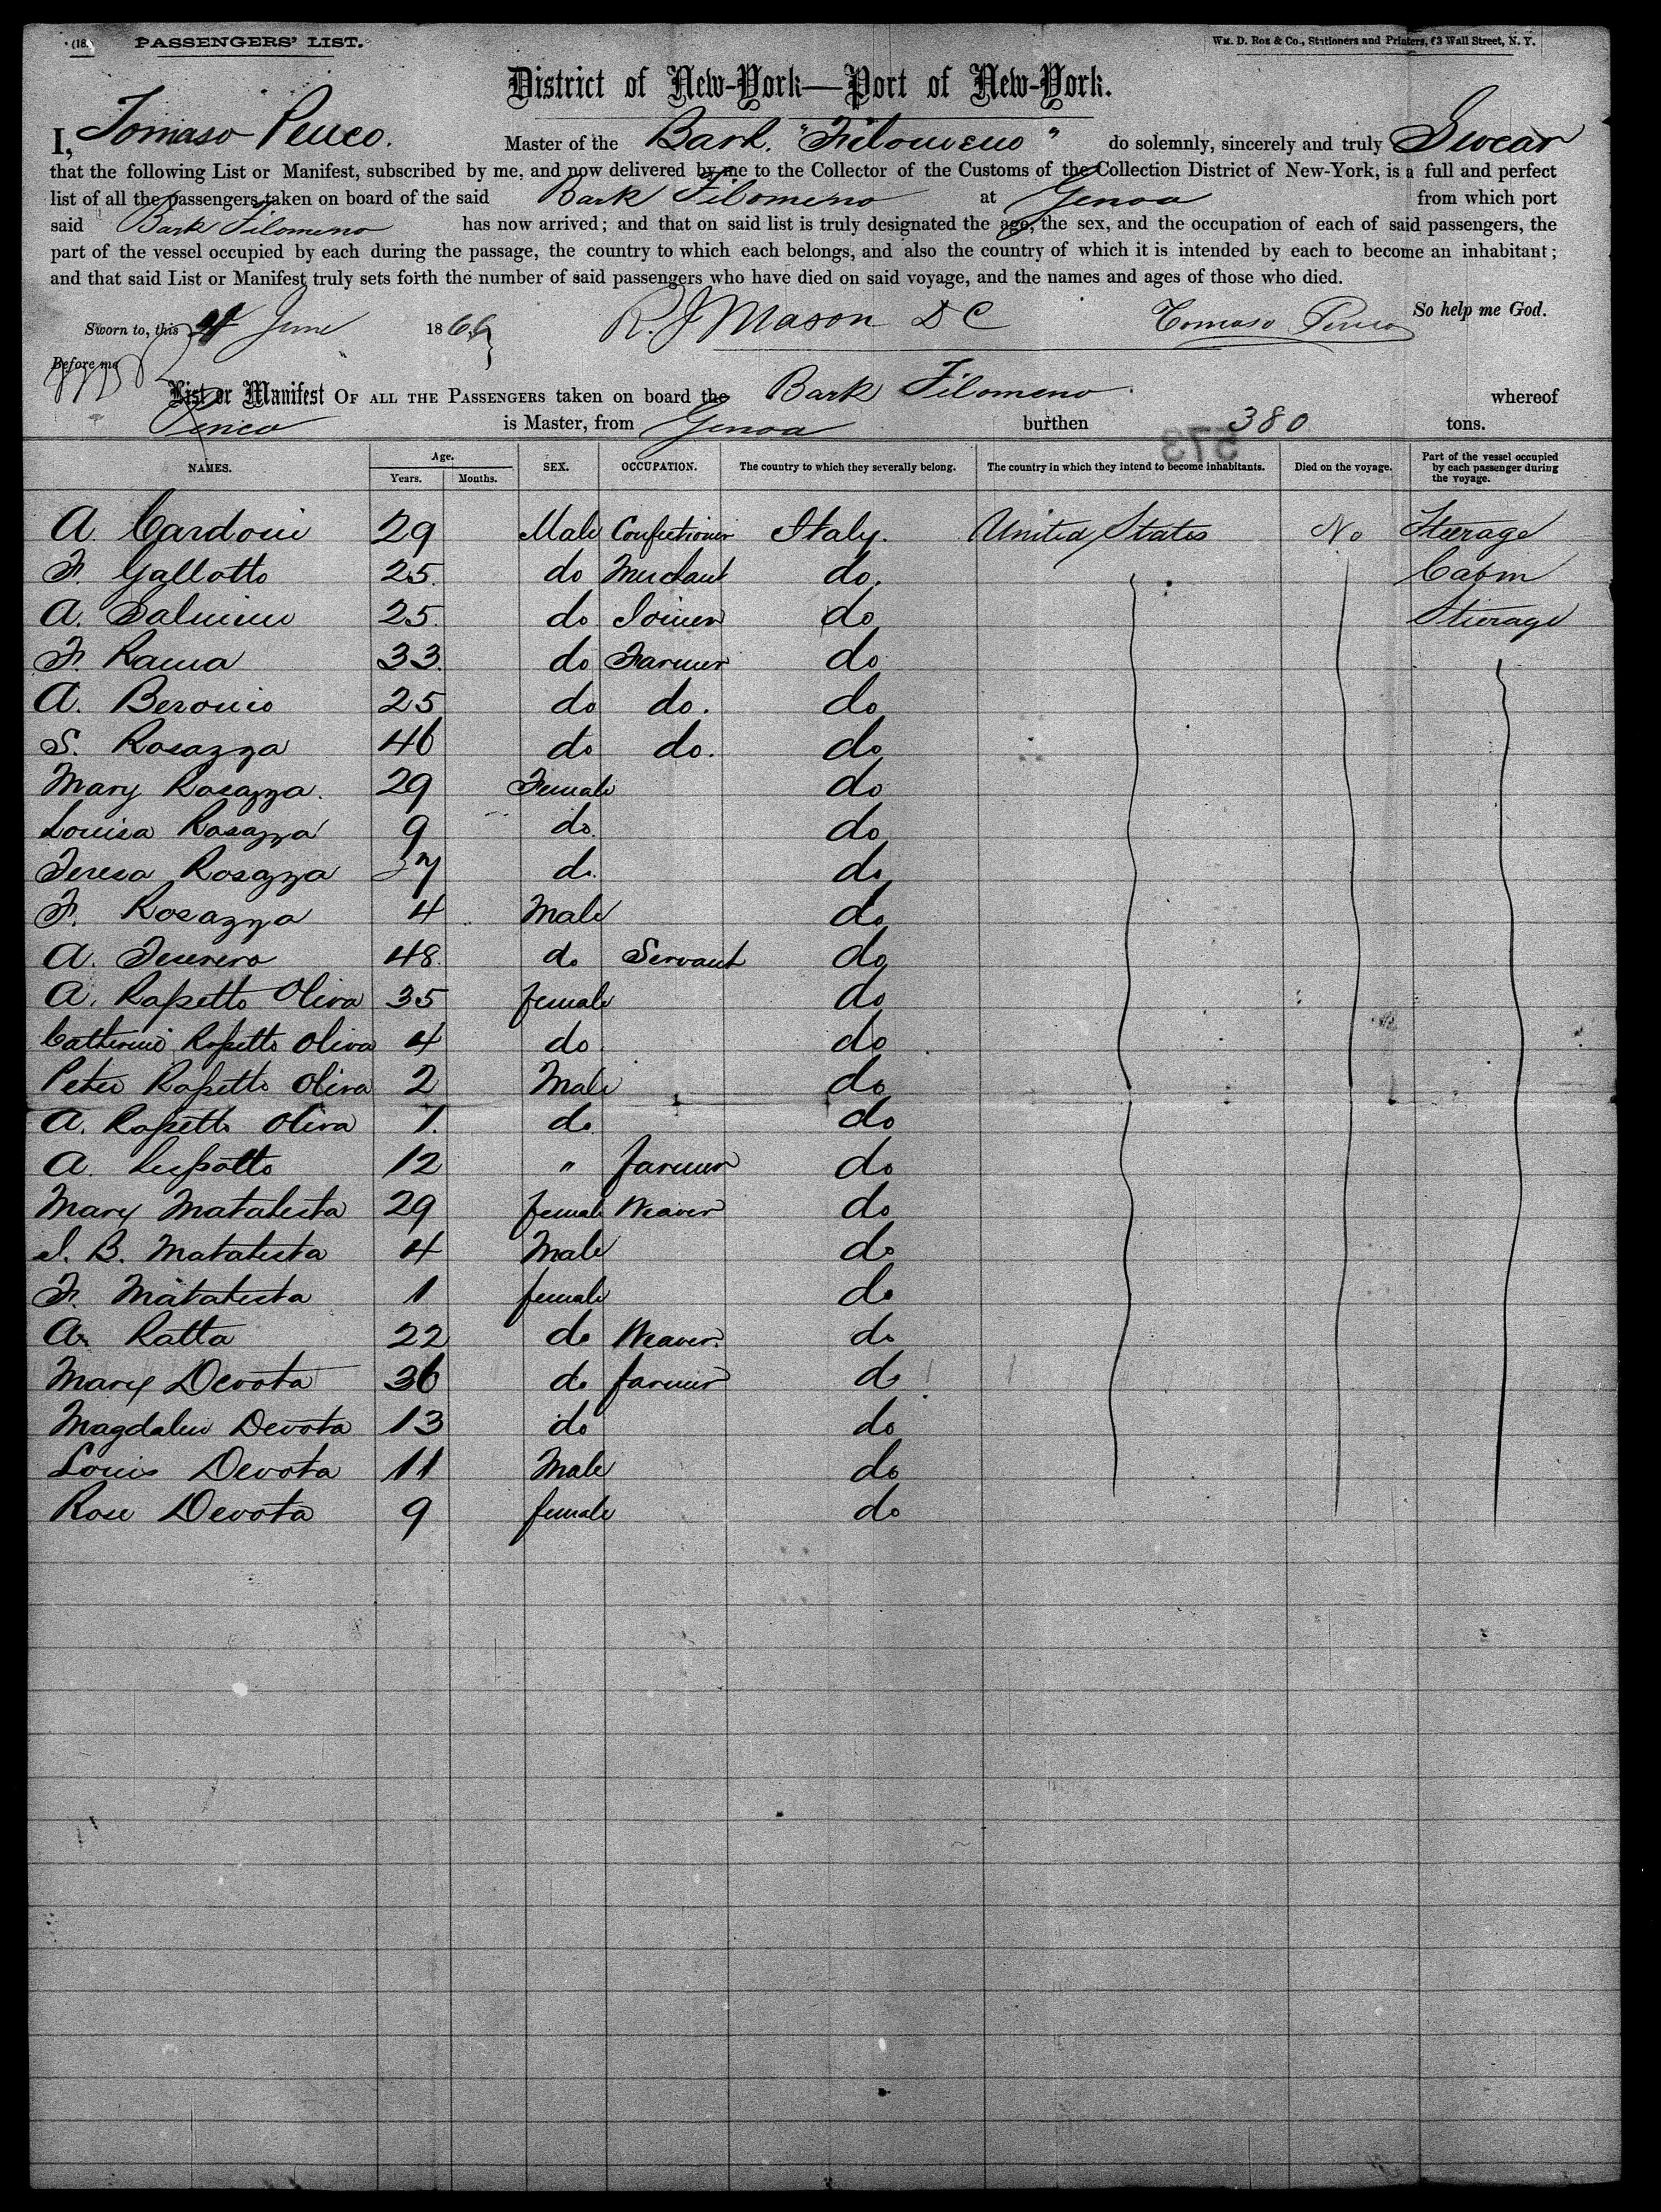 (18.
PASSENGERS' LIST.
Wm. D. Roe & Co., Stationers and Printers, 63 Wall Street, N. Y.
District of New-York—Port of New-York.
I, Tomaso Penco. Master of the Bark "Filomeno" do solemnly, sincerely and truly Swear
that the following List or Manifest, subscribed by me, and now delivered by me to the Collector of the Customs of the Collection District of New-York, is a full and perfect
list of all the passengers taken on board of the said Bark Filomeno at Genoa from which port
said Bark Filomeno has now arrived; and that on said list is truly designated the age, the sex, and the occupation of each of said passengers, the
part of the vessel occupied by each during the passage, the country to which each belongs, and also the country of which it is intended by each to become an inhabitant;
and that said List or Manifest truly sets forth the number of said passengers who have died on said voyage, and the names and ages of those who died.
So help me God.
Sworn to, this June 186 R. J Mason D C Tomaso Penco
Before me
List or Manifest OF ALL THE PASSENGERS taken on board the Bark Filomeno whereof
Penco is Master, from Genoa burthen 380 tons.
573
NAMES. Age. Years. Months. SEX. OCCUPATION. The country to which they severally belong. The country in which they intend to become inhabitants. Died on the voyage. Part of the vessel occupied by each passenger during the voyage.
A Cardoni 29 Male Confectioner Italy. United States No Steerage
F. Gallotto 25. do Merchant do. Cabin
A. 25. do Joiner do Steerage
F. Rama 33. do Farmer do
A. Beronio 25 do do. do
S. Rosazza 46 do do. do
Mary Rosazza. 29 Female do
Louisa Rosazza 9 do. do
Teresa Rosazza 7 do. do
F. Rosazza 4 Male do
A. 48. do Servant do
A. Rapetto Oliva 35 female do
Catherine Rapetto Oliva 4 do. do
Peter Rapetto Oliva 2 Male do
A. Rapetto Oliva 1. do. do
A. 12 " farmer do
Mary Matatesta 29 female Weaver do
J. B. Matatesta 4 Male do
F. Matatesta 1 female do
A. Ratta 22 do Weaver. do
Mary Devota 36 do farmer do
Magdalen Devota 13 do do
Louis Devota 11 Male do
Rose Devota 9 female do